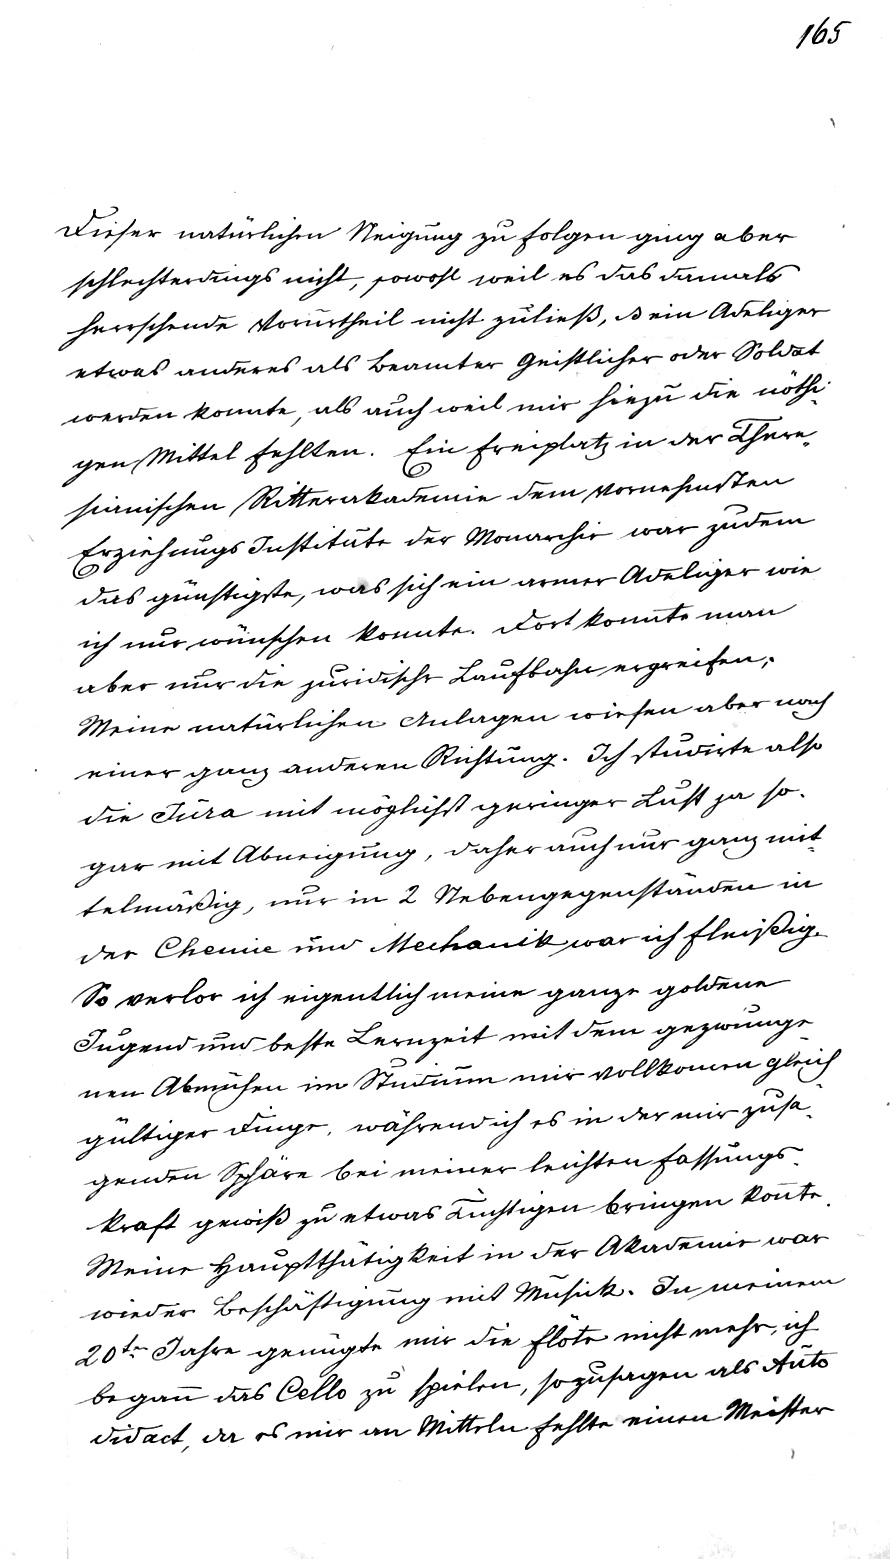 165
Dieser natürlichen Neigung zu folgen ging aber
schlechterdings nicht, sowohl weil es das damals
herrschende Vorurtheil nicht zuließ, ß ein Adeliger
etwas anderes als Beamter Geistlicher oder Soldat
werden konnte, als auch weil mir hiezu die nöthi-
gen Mittel fehlten. Ein Freiplatz in der There-
sianischen Ritterakademie dem vornehmsten
Erziehungs Institute der Monarchie war zudem
das günstigste, was sich ein armer Adeliger wie
ich nur wünschen konnte. Dort konnte man
aber nur die juridische Laufbahn ergreifen;
Meine natürlichen Anlagen wiesen aber nach
einer ganz anderen Richtung. Ich studirte also
die Jura mit möglichst geringer Lust ja so-
gar mit Abneigung, daher auch nur ganz mit-
telmäßig, nur in 2 Nebengegenständen in
der Chemie und Mechanik war ich fleißig.
So verlor ich eigentlich meine ganze goldene
Jugend und beste Lernzeit mit dem gezwunge-
nen Abmühen im Studium mir vollkomen gleich
gültiger Dinge, während ich es in der mir zusa-
genden Sphäre bei meiner leichten Fassungs-
kraft gewiß zu etwas Tüchtigen bringen konte.
Meine Hauptthätigkeit in der Akademie war
wieder Beschäftigung mit Musick. In meinem
20ten Jahre genügte mir die Flöte nicht mehr, ich
begann das Cello zu spielen, sozusagen als Auto
didact, da es mir an Mitteln fehlte einen Meister